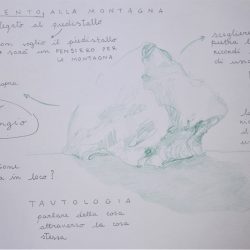 MENTO, ALLA MONTAGNA
legato al piedistallo
non voglio il piedistallo
sarà un PENSIERO PER
LA MONTAGNA
scegliere
pietra
ricordi
di us
opra
ngio
ione
a in loco?
TAUTOLOGIA
parlare della cosa
attraverso la cosa
stessa